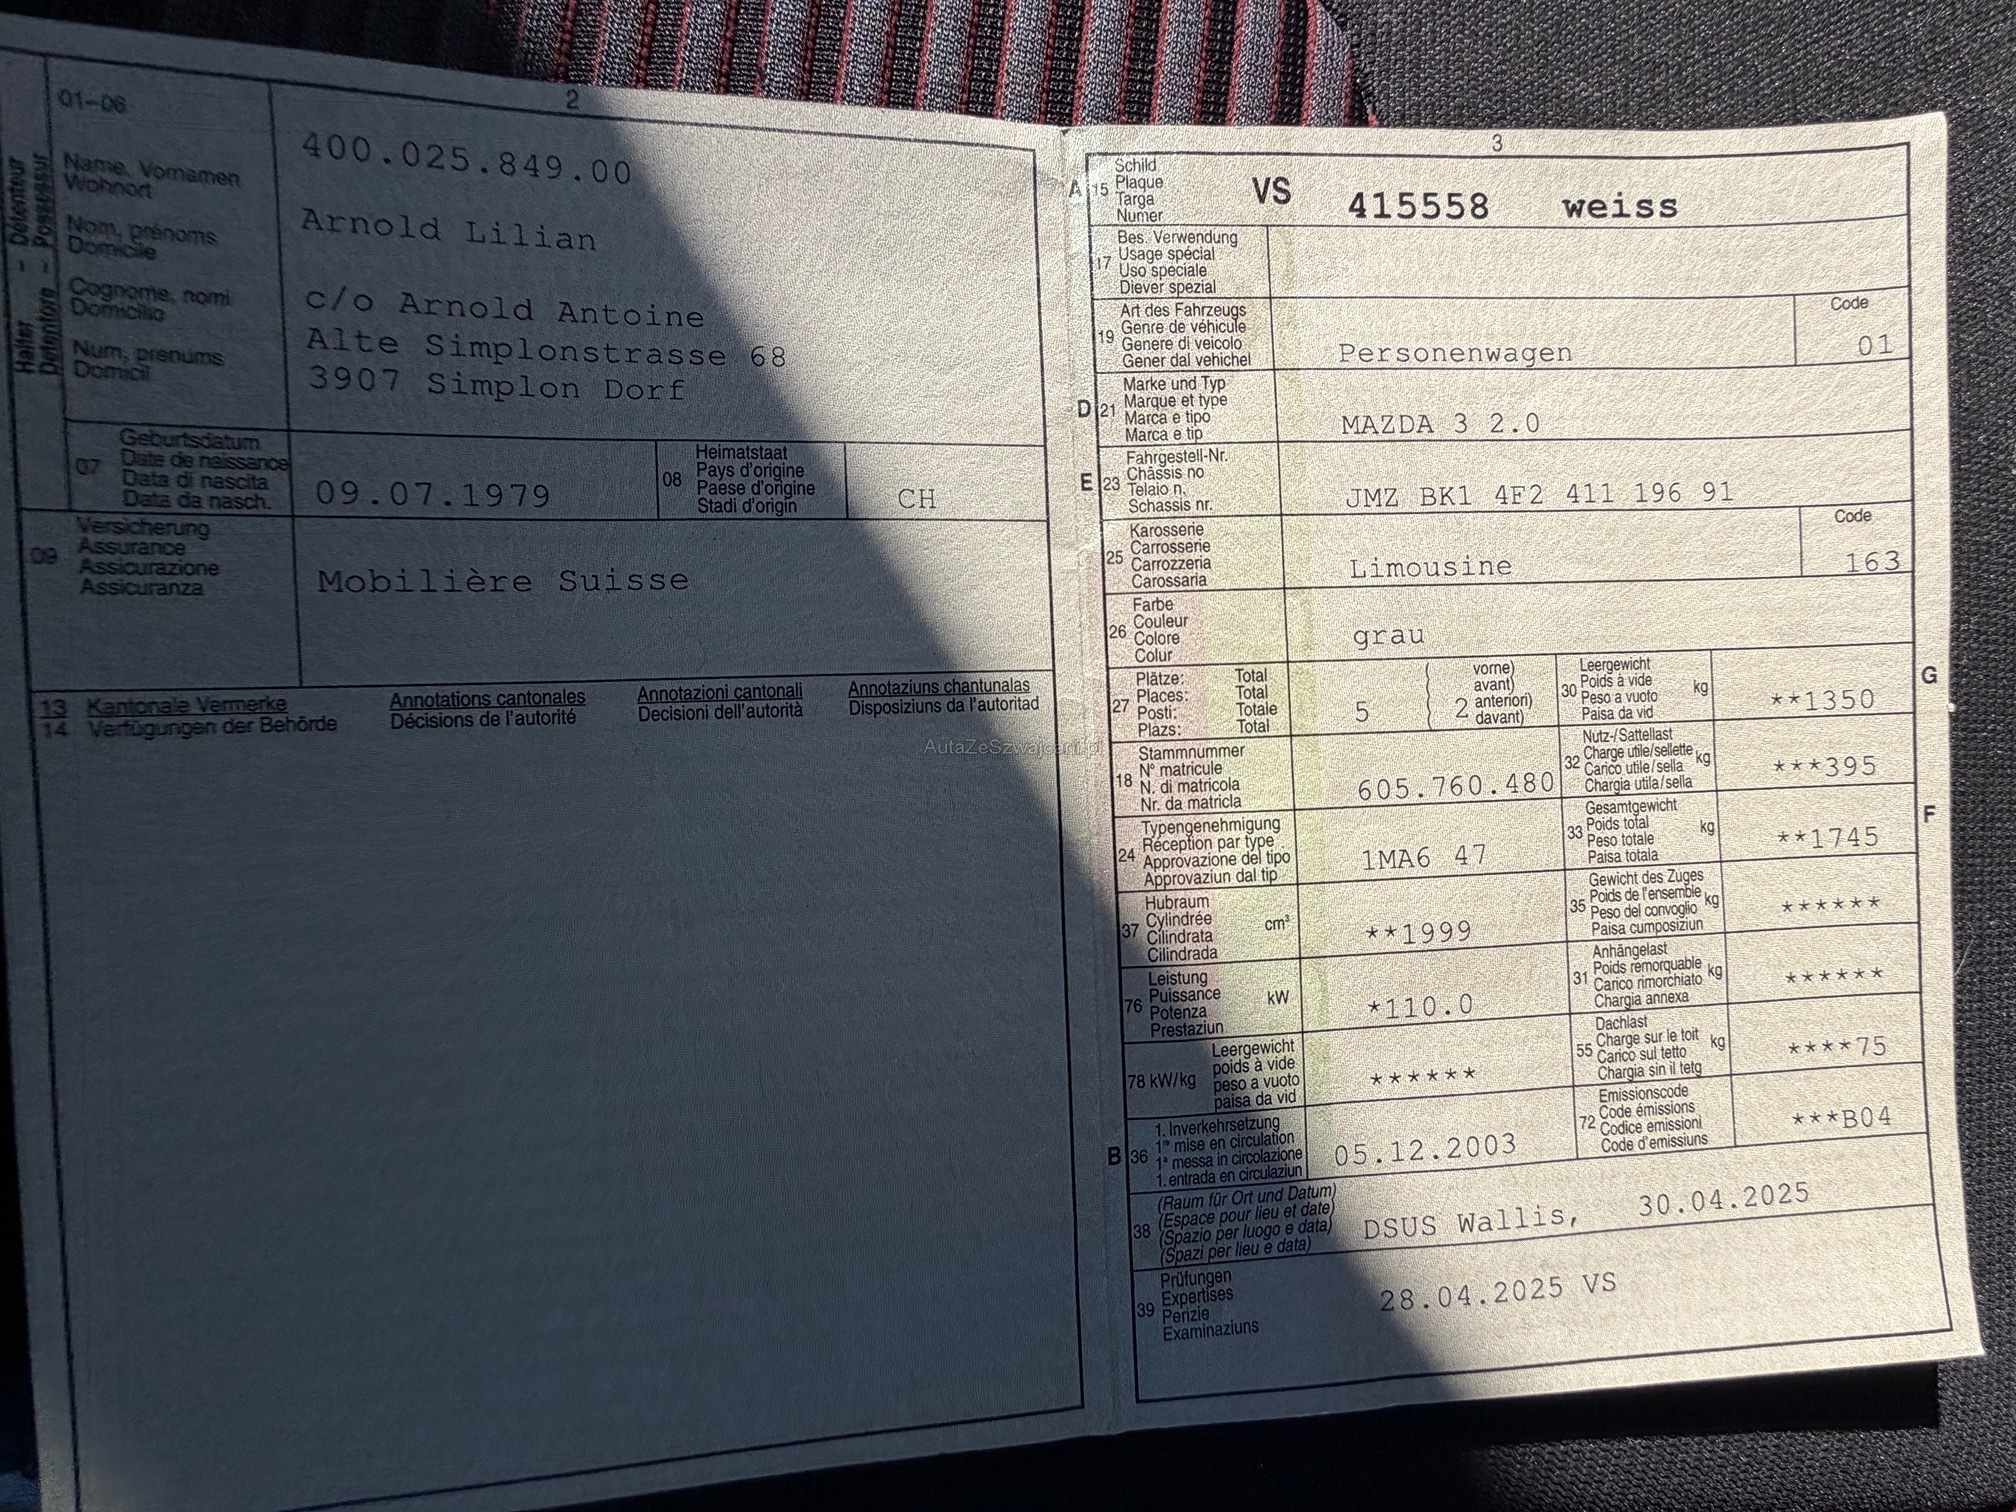 2
01-06
Halter - Détenteur
Detentore - Possessur
Name, Vornamen
Wohnort
Nom, prénoms
Domicile
Cognome, nomi
Domicilio
Num, prenums
Domicil
400.025.849.00
Arnold Lilian
c/o Arnold Antoine
Alte Simplonstrasse 68
3907 Simplon Dorf
07
Geburtsdatum
Date de naissance
Data di nascita
Data da nasch.
09.07.1979
08
Heimatstaat
Pays d'origine
Paese d'origine
Stadi d'origin
CH
09
Versicherung
Assurance
Assicurazione
Assicuranza
Mobilière Suisse
13 Kantonale Vermerke Annotations cantonales Annotazioni cantonali Annotaziuns chantunalas
14 Verfügungen der Behörde Décisions de l'autorité Decisioni dell'autorità Disposiziuns da l'autoritad
AutaZeSzwajcarii.pl
3
A 15
Schild
Plaque
Targa
Numer
VS 415558 weiss
17
Bes. Verwendung
Usage spécial
Uso speciale
Diever spezial
19
Art des Fahrzeugs
Genre de véhicule
Genere di veicolo
Gener dal vehichel
Personenwagen
Code
01
D 21
Marke und Typ
Marque et type
Marca e tipo
Marca e tip
MAZDA 3 2.0
E 23
Fahrgestell-Nr.
Châssis no
Telaio n.
Schassis nr.
JMZ BK1 4F2 411 196 91
25
Karosserie
Carrosserie
Carrozzeria
Carossaria
Limousine
Code
163
26
Farbe
Couleur
Colore
Colur
grau
27
Plätze: Total
Places: Total
Posti: Totale
Plazs: Total
5
2
vorne)
avant)
anteriori)
davant)
30
Leergewicht
Poids à vide
Peso a vuoto
Paisa da vid
kg
**1350
G
18
Stammnummer
N° matricule
N. di matricola
Nr. da matricla
605.760.480
32
Nutz-/Sattellast
Charge utile/sellette
Carico utile/sella
Chargia utila/sella
kg
***395
24
Typengenehmigung
Réception par type
Approvazione del tipo
Approvaziun dal tip
1MA6 47
33
Gesamtgewicht
Poids total
Peso totale
Paisa totala
kg
**1745
F
37
Hubraum
Cylindrée
Cilindrata
Cilindrada
cm³
**1999
35
Gewicht des Zuges
Poids de l'ensemble
Peso del convoglio
Paisa cumposiziun
kg
******
76
Leistung
Puissance
Potenza
Prestaziun
kW
*110.0
31
Anhängelast
Poids remorquable
Carico rimorchiato
Chargia annexa
kg
******
78 kW/kg
Leergewicht
poids à vide
peso a vuoto
paisa da vid
******
55
Dachlast
Charge sur le toit
Carico sul tetto
Chargia sin il tetg
kg
****75
B 36
1. Inverkehrsetzung
1re mise en circulation
1a messa in circolazione
1. entrada en circulaziun
05.12.2003
72
Emissionscode
Code émissions
Codice emissioni
Code d'emissiuns
***B04
38
(Raum für Ort und Datum)
(Espace pour lieu et date)
(Spazio per luogo e data)
(Spazi per lieu e data)
DSUS Wallis, 30.04.2025
39
Prüfungen
Expertises
Perizie
Examinaziuns
28.04.2025 VS